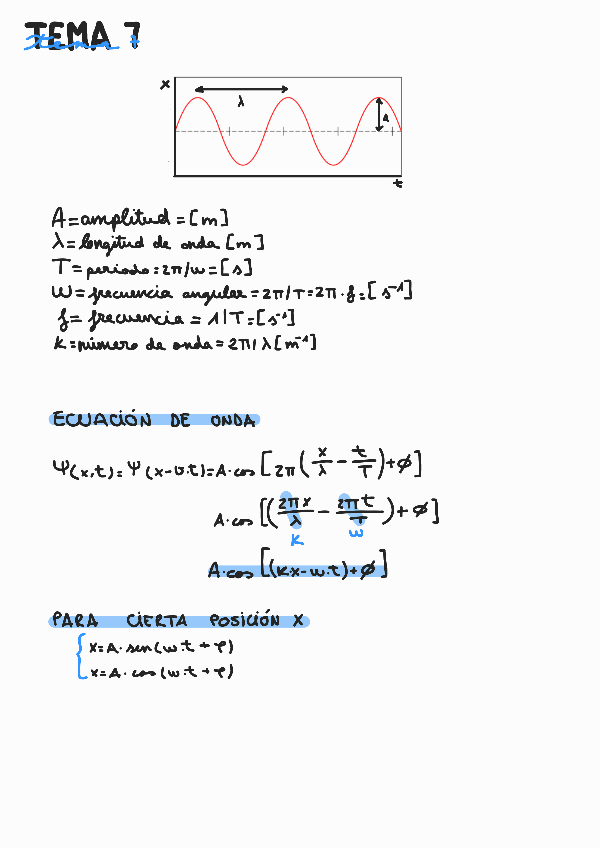 TEMA 7
Tema 7
x
λ
A
t
A = amplitud = [m]
λ = longitud de onda [m]
T = periodo = 2π/w = [s]
W = frecuencia angular = 2π/T = 2π · f = [s⁻¹]
f = frecuencia = 1/T = [s⁻¹]
K = número de onda = 2π/λ [m⁻¹]
ECUACIÓN DE ONDA
Ψ(x,t) = Ψ(x-v·t) = A·cos [2π (x/λ - t/T) + φ]
A·cos [(2πx/λ - 2πt/T) + φ]
K w
A·cos [(K·x - w·t) + φ]
PARA CIERTA POSICIÓN X
x = A · sen (w·t + φ)
x = A · cos (w·t + φ)